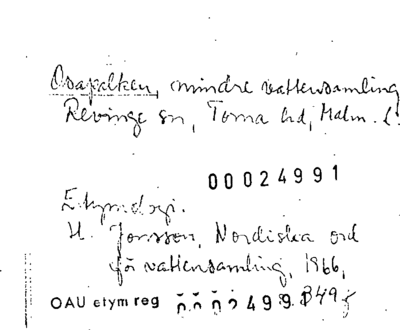 Osapalken, mindre vattensamling
Revinge sn, Torna hd, Malm. L.
00024991
Etymologi.
H. Jonsson, Nordiska ord
för vattensamling, 1966,
349 f
OAU etym reg